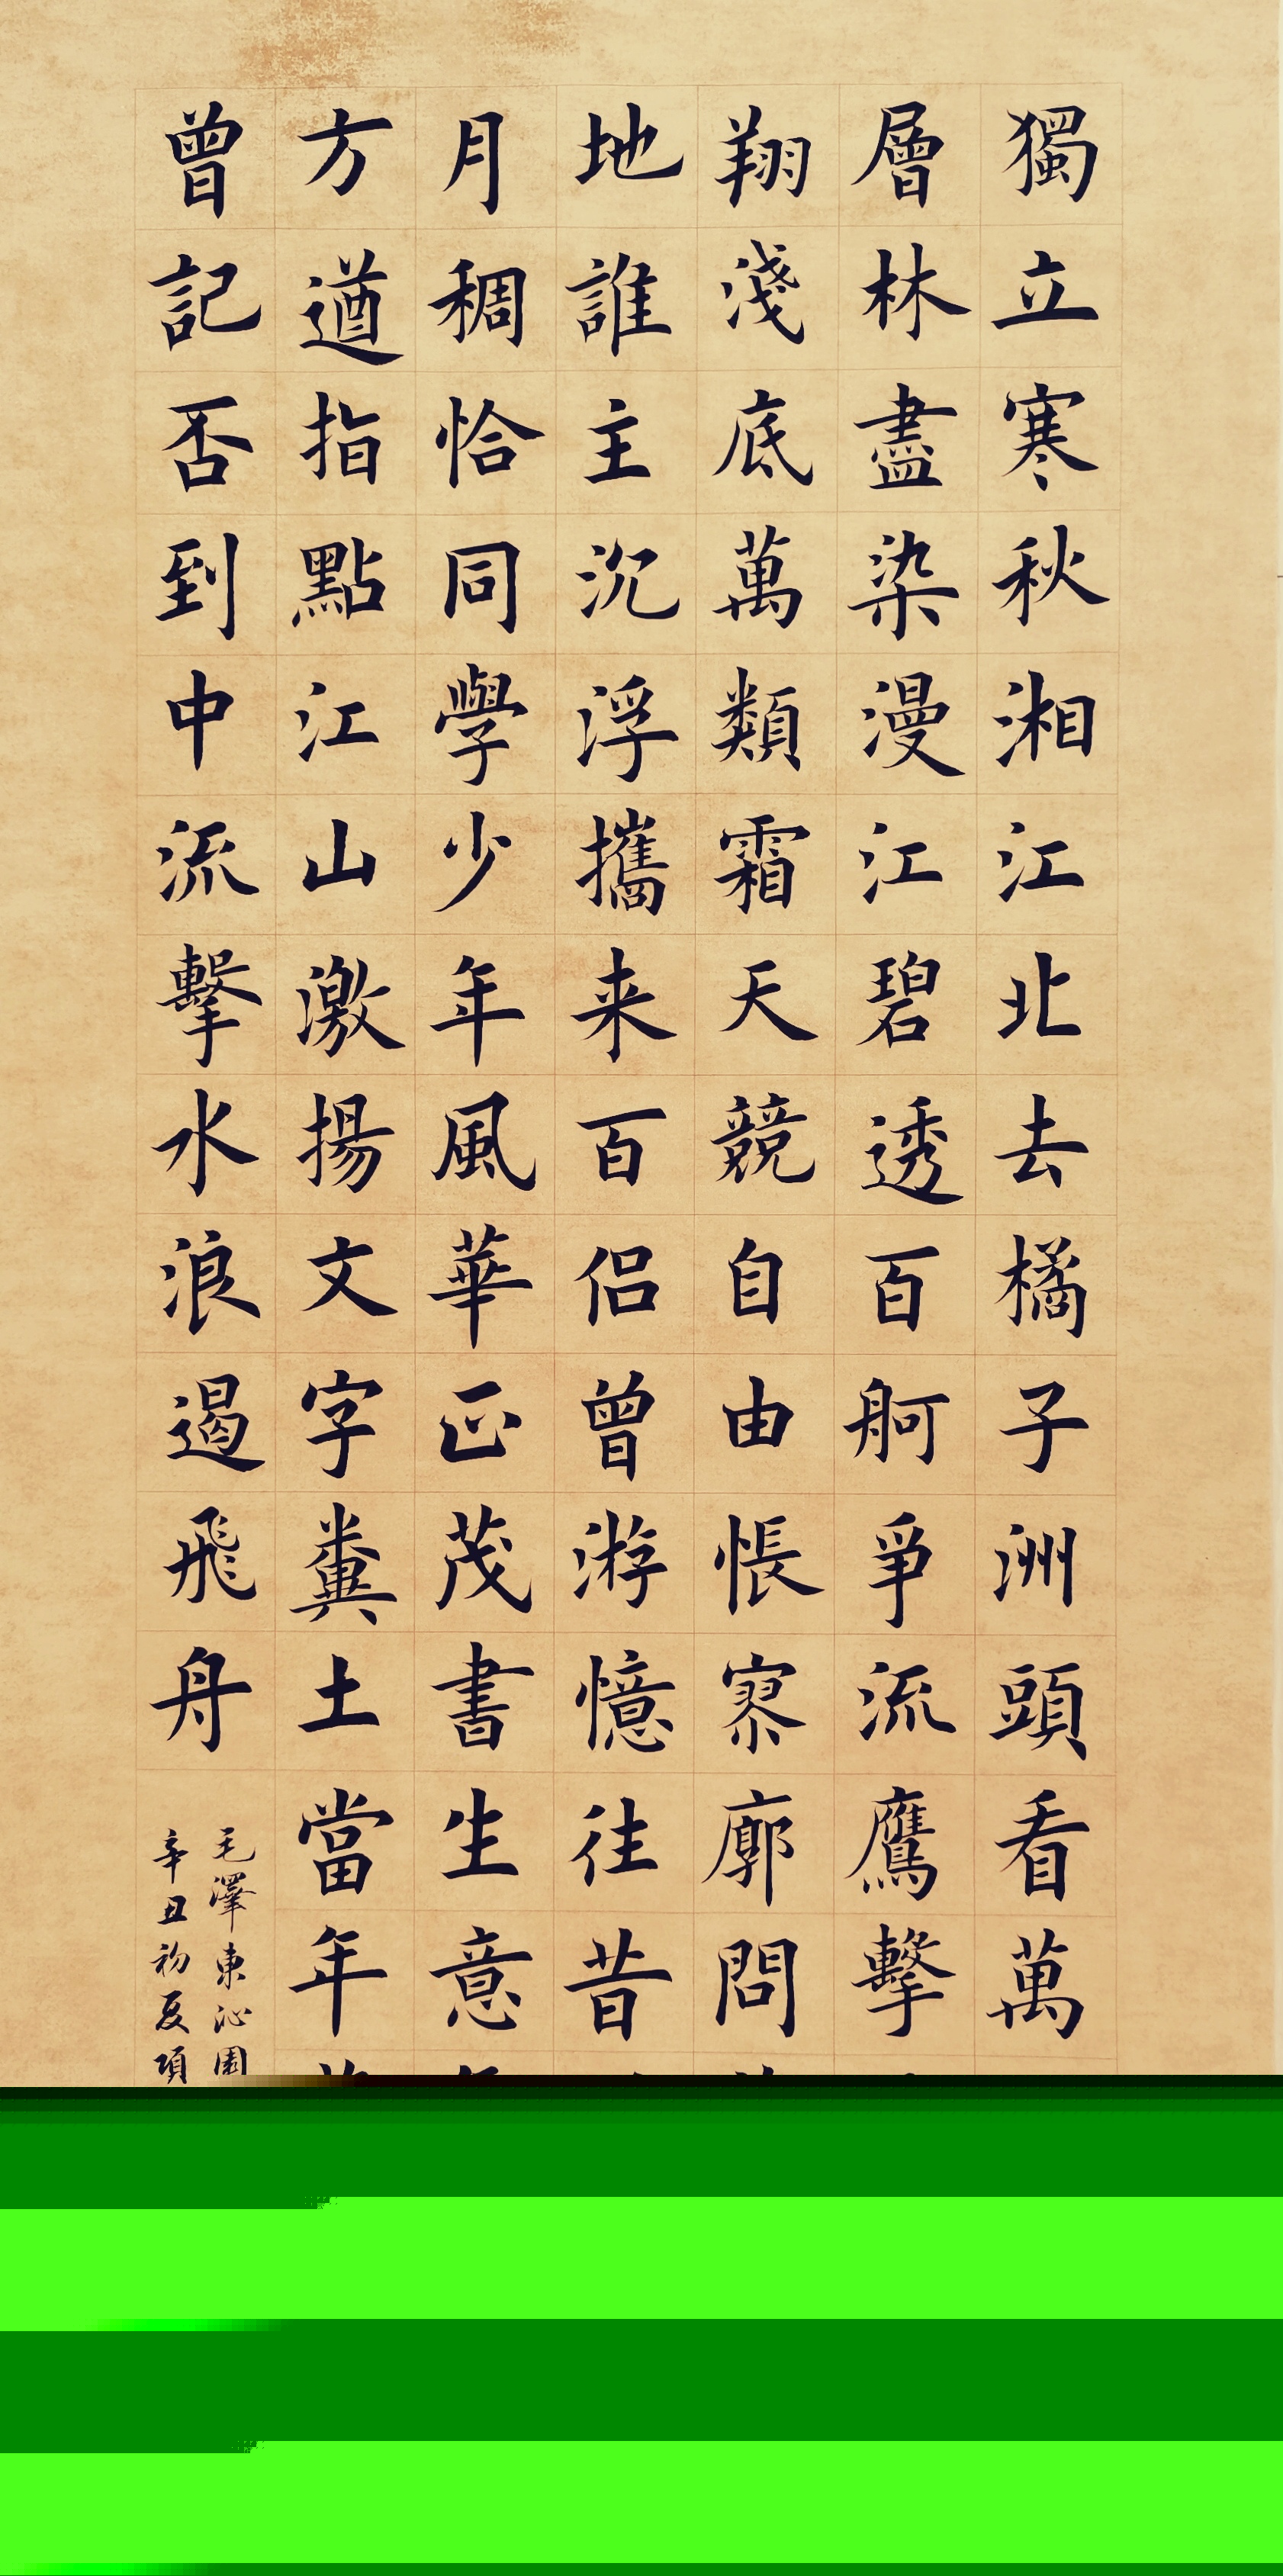 獨立寒秋湘江北去橘子洲頭看萬
層林盡染漫江碧透百舸爭流鷹擊
翔淺底萬類霜天競自由悵寥廓問
地誰主沉浮攜来百侣曾游憶往昔
月稠恰同學少年風華正茂書生意
方遒指點江山激揚文字糞土當年
曾記否到中流擊水浪遏飛舟
毛澤東沁園
辛丑初夏項